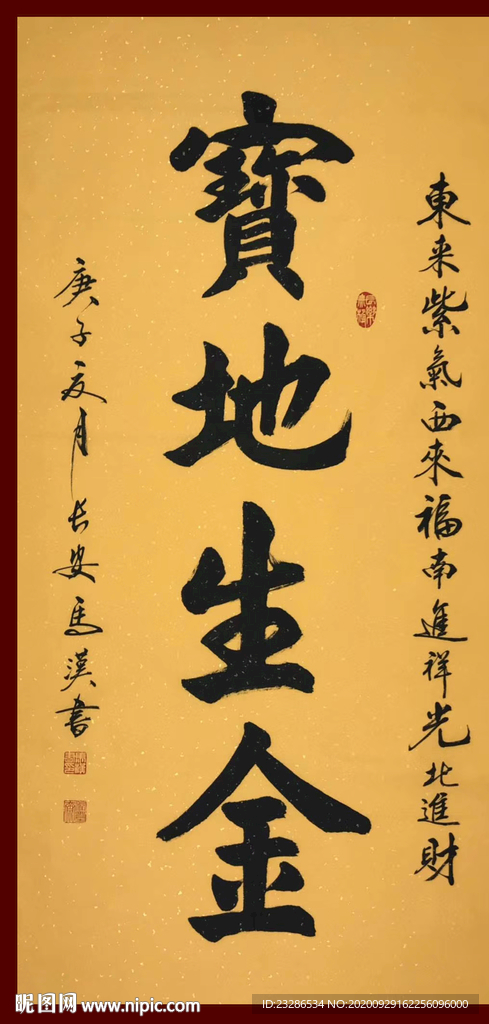 東来紫氣西來福南進祥光北進財
寶地生金
庚子夏月长安馬漢書
昵图网 www.nipic.com
ID:23286534 NO:20200929162256096000